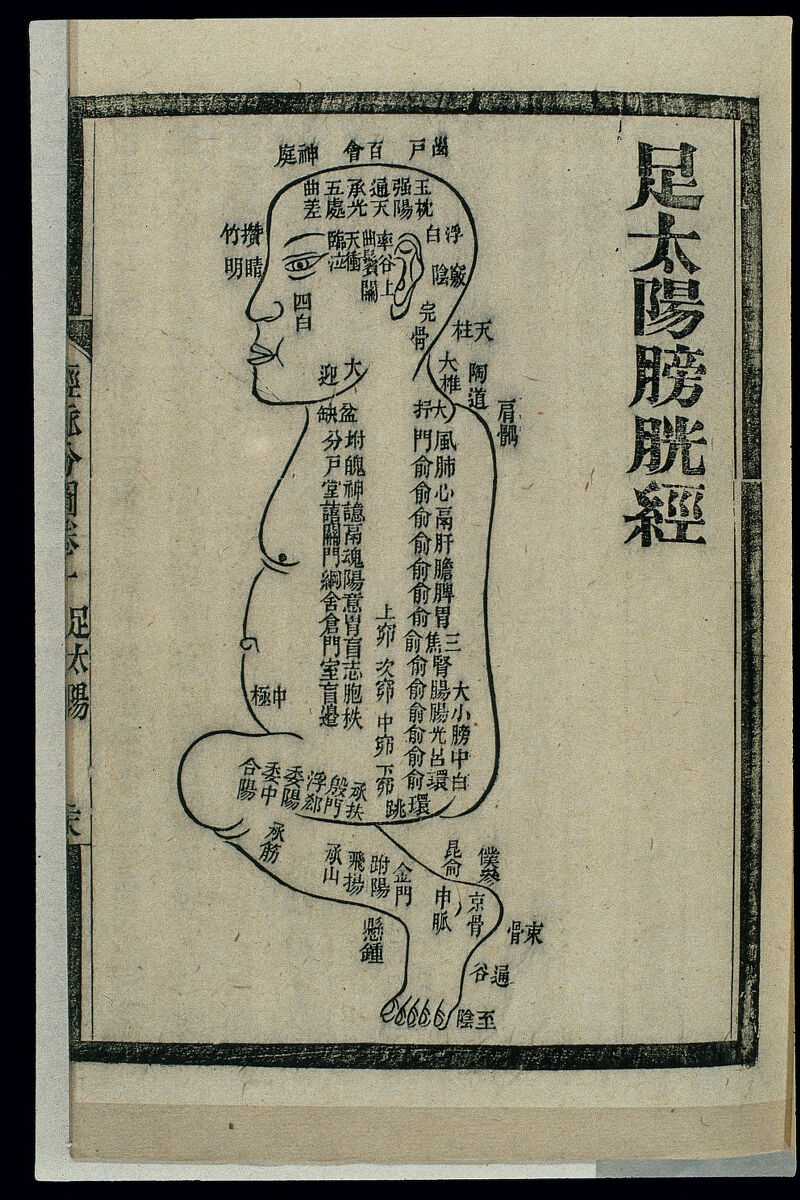 足太陽膀胱經
顖戶
百會
神庭
玉枕
强陽
通天
承光
五處
曲差
浮白
竅陰
率谷
曲鬢
天衝
臨泣
上關
攢竹
睛明
四白
完骨
天柱
大椎
陶道
肩髃
大迎
缺盆
大杼
風門
肺俞
心俞
鬲俞
肝俞
膽俞
脾俞
胃俞
三焦俞
腎俞
大腸俞
小腸俞
膀光俞
中呂俞
白環俞
附分
魄戶
神堂
譩譆
鬲關
魂門
陽綱
意舍
胃倉
肓門
志室
胞肓
秩邊
上窌
次窌
中窌
下窌
中極
環跳
承扶
殷門
浮郄
委陽
委中
合陽
承筋
承山
飛揚
跗陽
金門
崑俞
僕參
申脈
京骨
束骨
懸鍾
通谷
至陰
經脈分圖卷一
足太陽